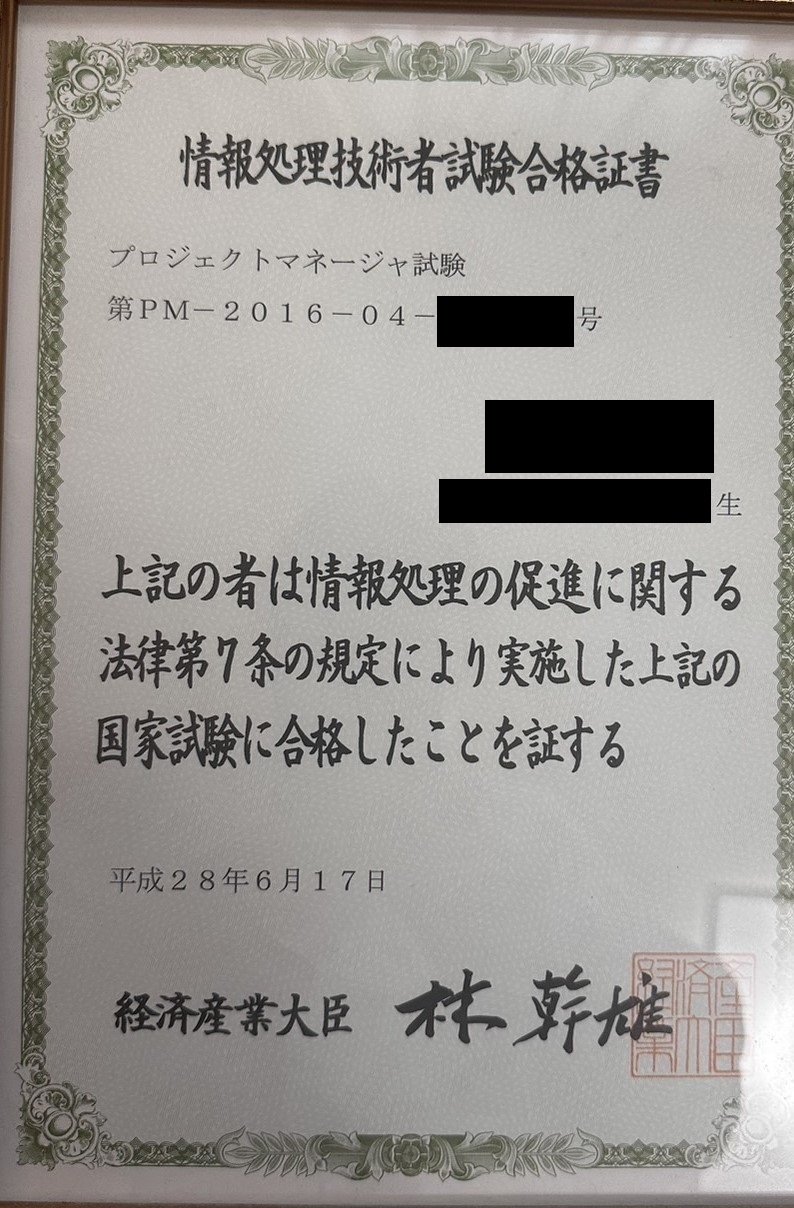 情報処理技術者試験合格証書
プロジェクトマネージャ試験
第PM－２０１６－０４－
号
生
上記の者は情報処理の促進に関する
法律第7条の規定により実施した上記の
国家試験に合格したことを証する
平成２８年６月１７日
経済産業大臣 林幹雄